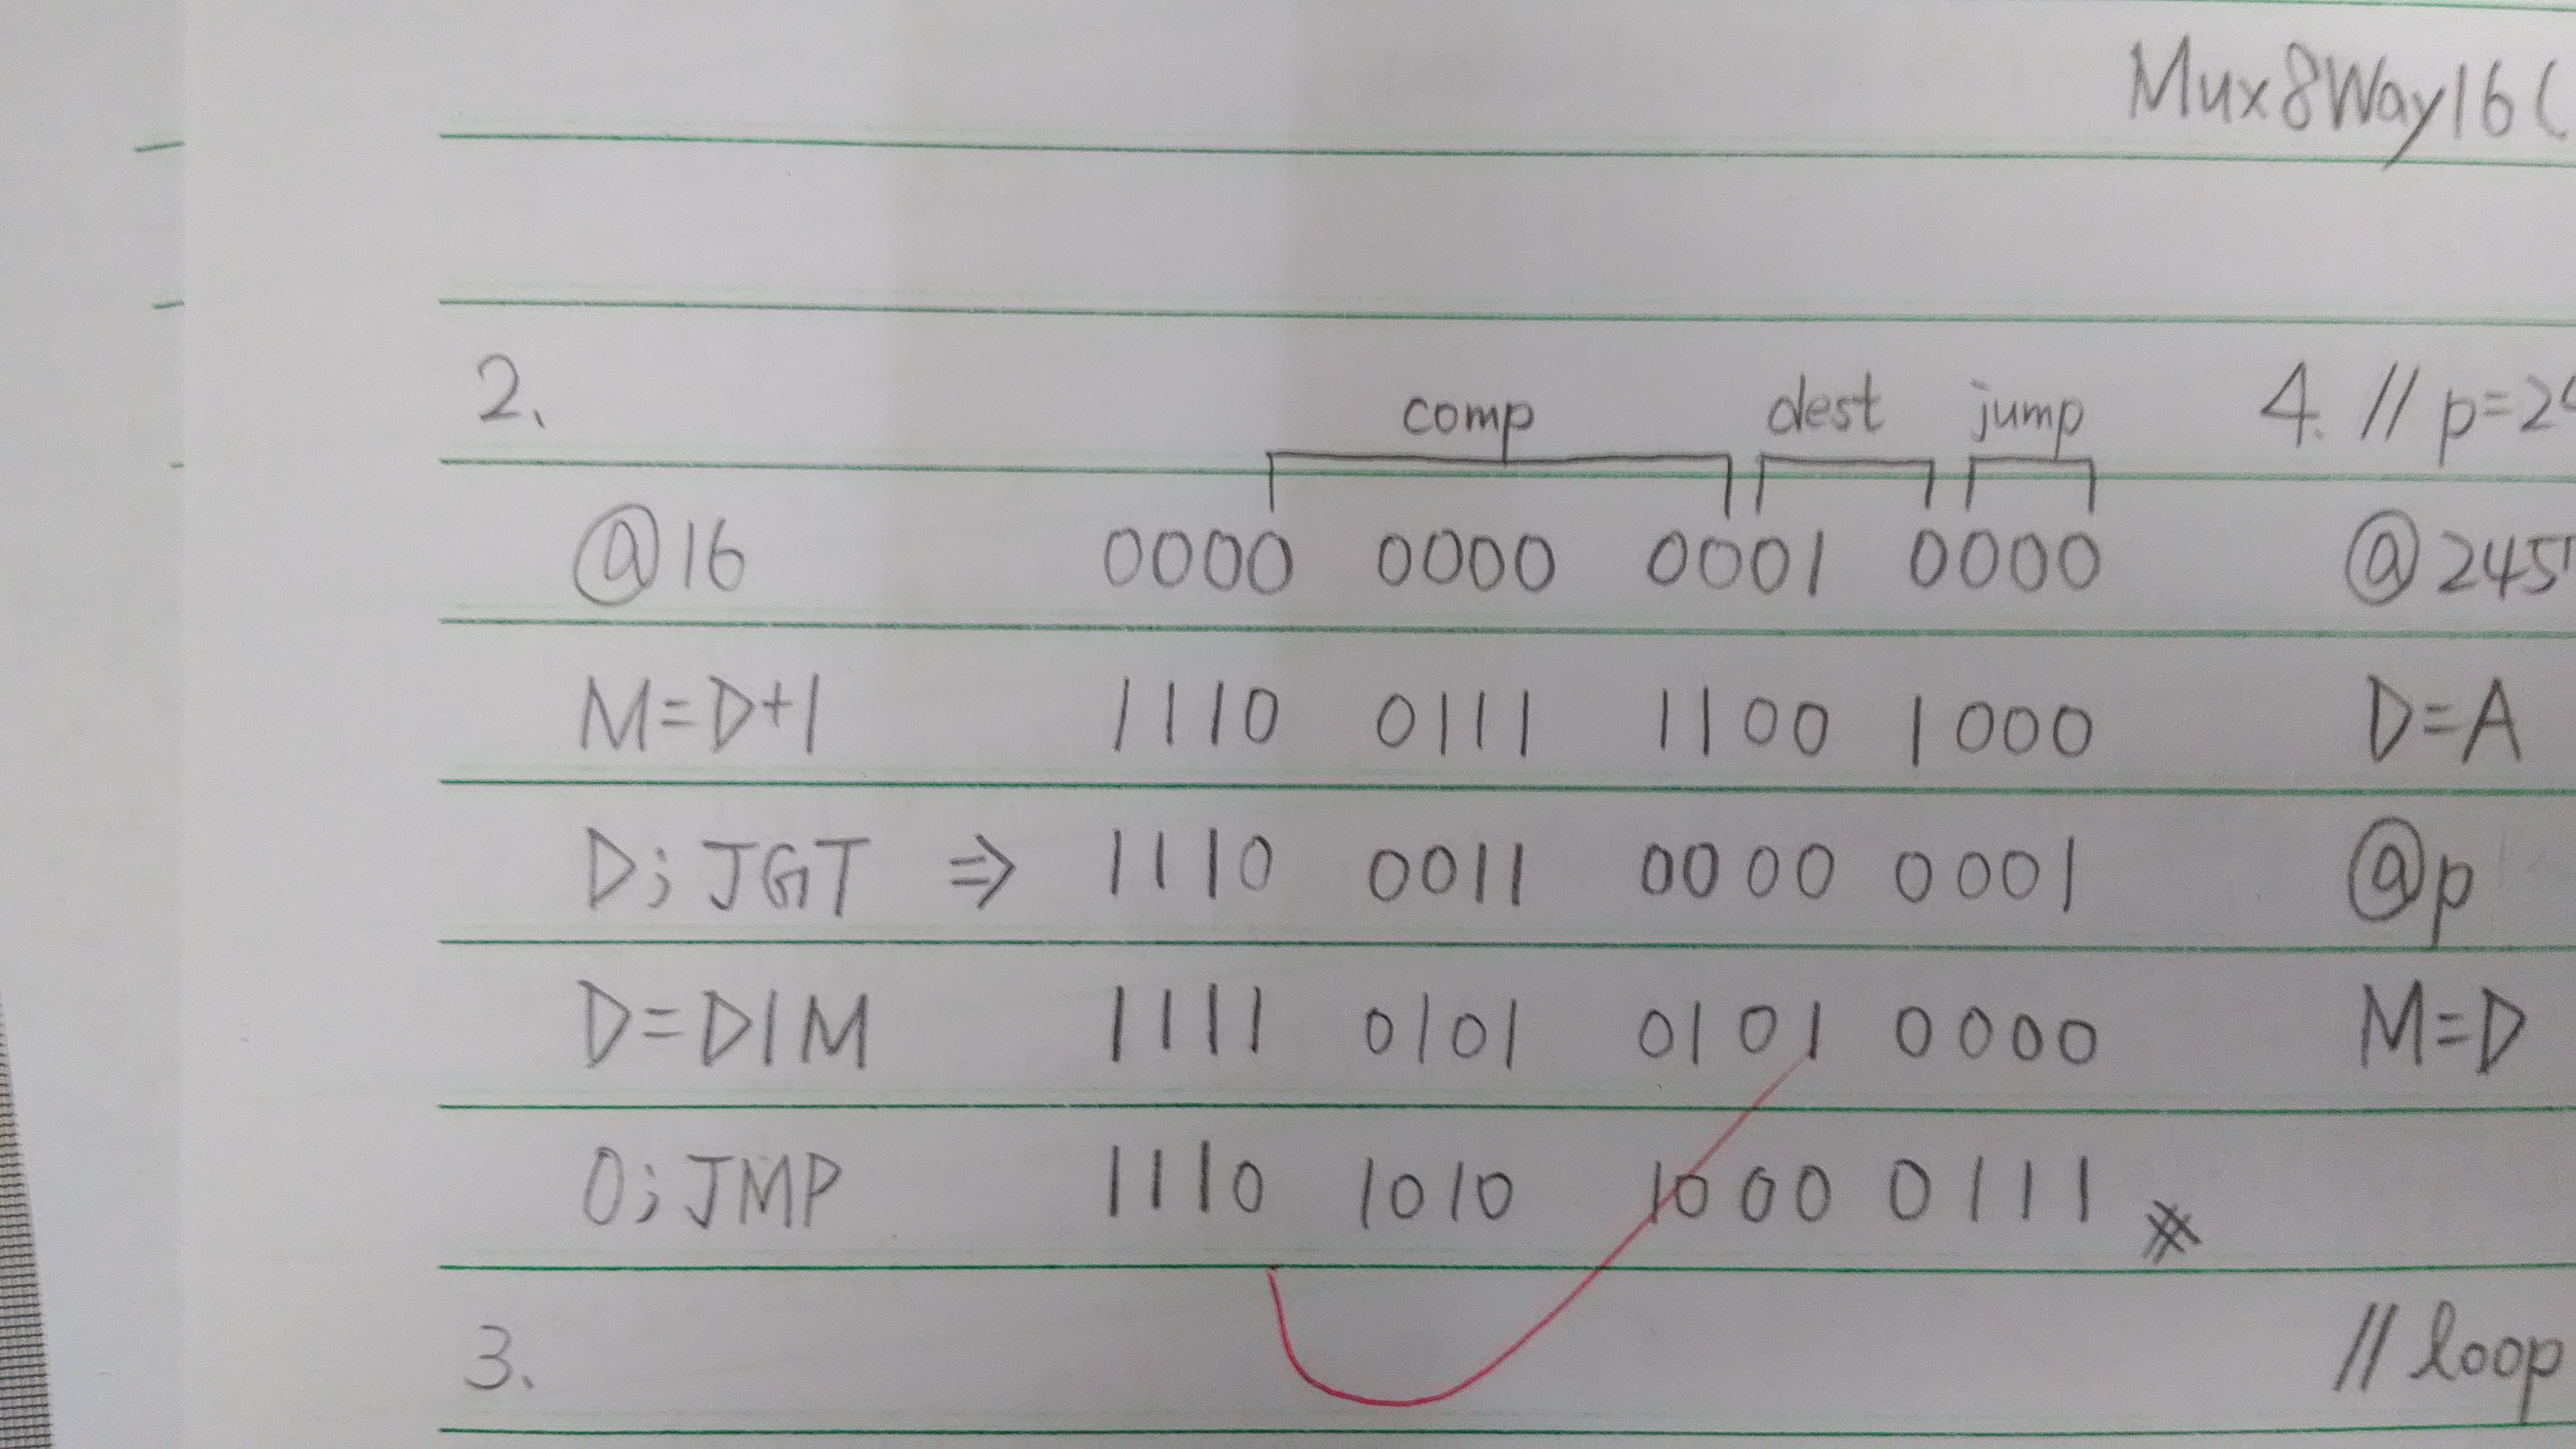 Mux8Way16(
2、
comp dest jump
@16 0000 0000 0001 0000
M=D+1 1110 0111 1100 1000
D;JGT ⇒ 1110 0011 0000 0001
D=D|M 1111 0101 0101 0000
0;JMP 1110 1010 1000 0111 #
3、
4. // p=24
@245
D=A
@p
M=D
// loop